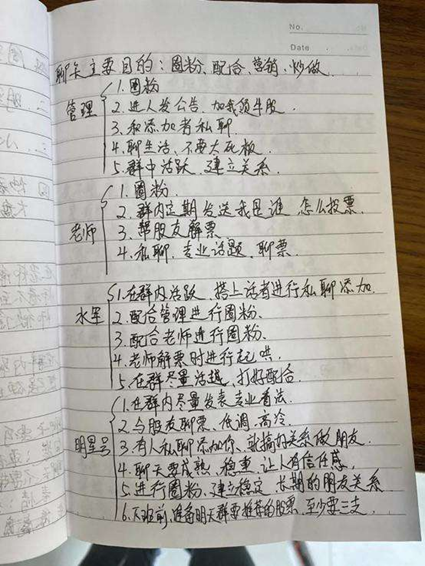 No.
Date
聊天主要目的：圈粉、配合、营销、炒做、
管理
1.圈粉
2.进人发公告.加我领牛股.
3.和添加者私聊.
4.聊生活、不要太死板
5.群中活跃、建立关系.
老师
1.圈粉.
2.群内定期发送我是谁、怎么投票.
3.帮股友解票
4.私聊、专业话题、聊票.
水军
1.在群内活跃、搭上话者进行私聊添加.
2.配合管理进行圈粉.
3.配合老师进行圈粉.
4.老师解票时进行起哄.
5.在群尽量活越、打好配合.
明星号
1.在群内尽量发表专业看法.
2.与股友聊票、低调、高冷.
3.有人私聊添加你、就搞好关系做朋友.
4.聊天要成熟、稳重、让人有信任感.
5.进行圈粉、建立稳定、长期的朋友关系.
6.下班前、准备明天群要推荐的股票、至少要三支.